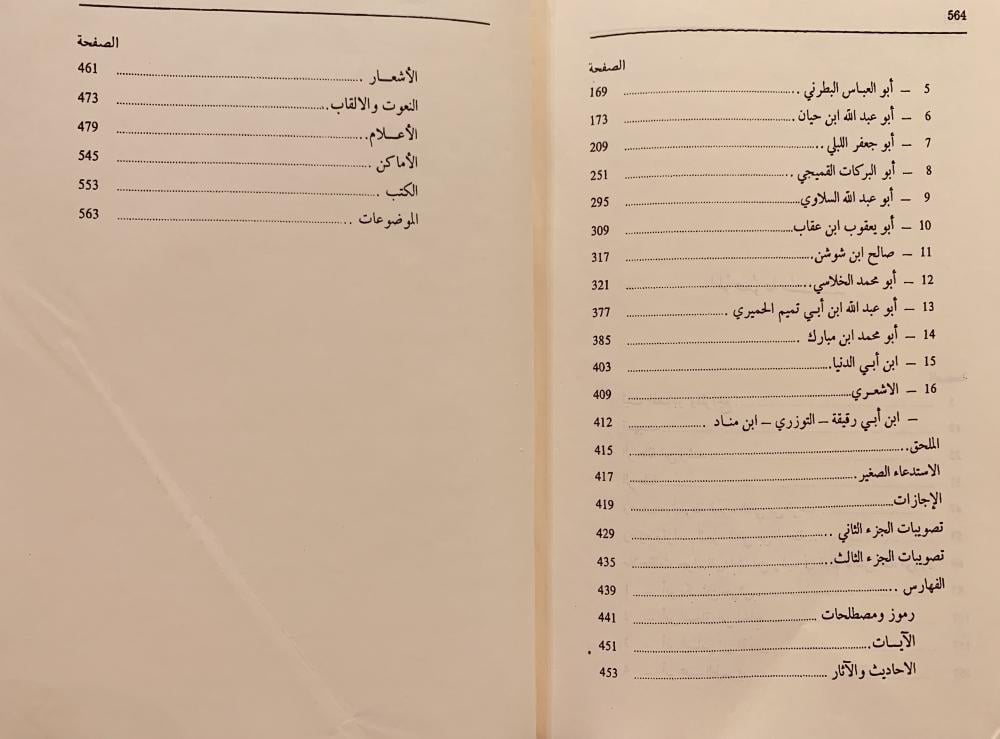 564
الصفحة
5 – أبو العباس البطرني .............................. 169
6 – أبو عبد الله ابن حيان .............................. 173
7 – أبو جعفر اللبلي .............................. 209
8 – أبو البركات القميجي .............................. 251
9 – أبو عبد الله السلاوي .............................. 295
10 – أبو يعقوب ابن عقاب .............................. 309
11 – صالح ابن شوشن .............................. 317
12 – أبو محمد الخلاسي .............................. 321
13 – أبو عبد الله ابن أبي تميم الحميري .............................. 377
14 – أبو محمد ابن مبارك .............................. 385
15 – ابن أبي الدنيا .............................. 403
16 – الاشعـري .............................. 409
– ابن أبي رقيقة – التوزري – ابن منـاد .............................. 412
الملحق .............................. 415
الاستدعاء الصغير .............................. 417
الإجازات .............................. 419
تصويبات الجزء الثاني .............................. 429
تصويبات الجزء الثالث .............................. 435
الفهارس .............................. 439
رموز ومصطلحات .............................. 441
الآيـات .............................. 451
الاحاديث والآثار .............................. 453
الصفحة
الأشعـار .............................. 461
النعوت والالقاب .............................. 473
الأعـلام .............................. 479
الأماكن .............................. 545
الكتب .............................. 553
الموضوعات .............................. 563